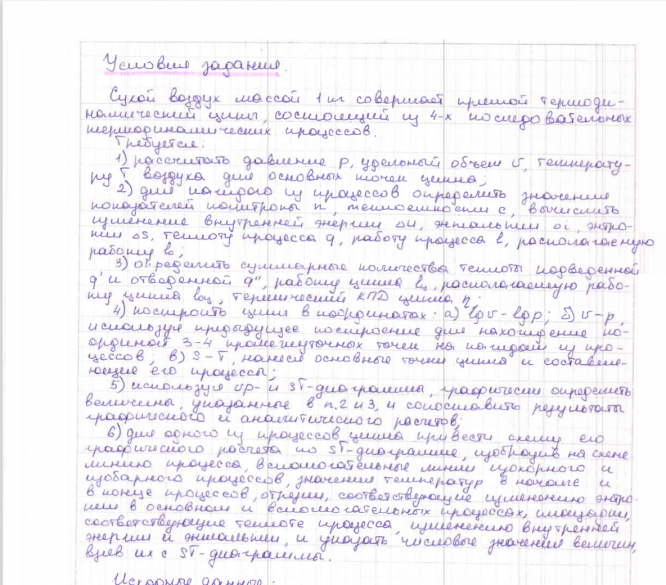 Условия задания.
Сухой воздух массой 1 кг совершает прямой термоди-
намический цикл, состоящий из 4-х последовательных
термодинамических процессов.
Требуется:
1) рассчитать давление р, удельный объем υ, температу-
ру Т воздуха для основных точек цикла;
2) для каждого из процессов определить значения
показателей политропы n, теплоемкости с, вычислить
изменение внутренней энергии Δu, энтальпии Δi, энтро-
пии ΔS, теплоту процесса q, работу процесса l, располагаемую
работу l₀;
3) определить суммарные количества теплоты подведенной
q' и отведенной q'', работу цикла lц, располагаемую рабо-
ту цикла l₀ц, термический КПД цикла η;
4) построить цикл в координатах: а) lgυ - lgp; б) υ-p,
используя предыдущее построение для нахождения ко-
ординат 3-4 промежуточных точек на каждом из про-
цессов; в) S-T, нанеся основные точки цикла и составля-
ющие его процессы;
5) используя υp- и ST-диаграммы, графически определить
величины, указанные в п.2 и 3, и сопоставить результаты
графического и аналитического расчетов;
6) для одного из процессов цикла привести схему его
графического расчета по ST-диаграмме, изобразив на схеме
линию процесса, вспомогательные линии изохорного и
изобарного процессов, значения температур в начале и
в конце процессов, отрезки, соответствующие изменению энтро-
пии в основном и вспомогательных процессах, площадки,
соответствующие теплоте процесса, изменению внутренней
энергии и энтальпии, и указать числовые значения величин,
взяв их с ST-диаграммы.
Исходные данные: